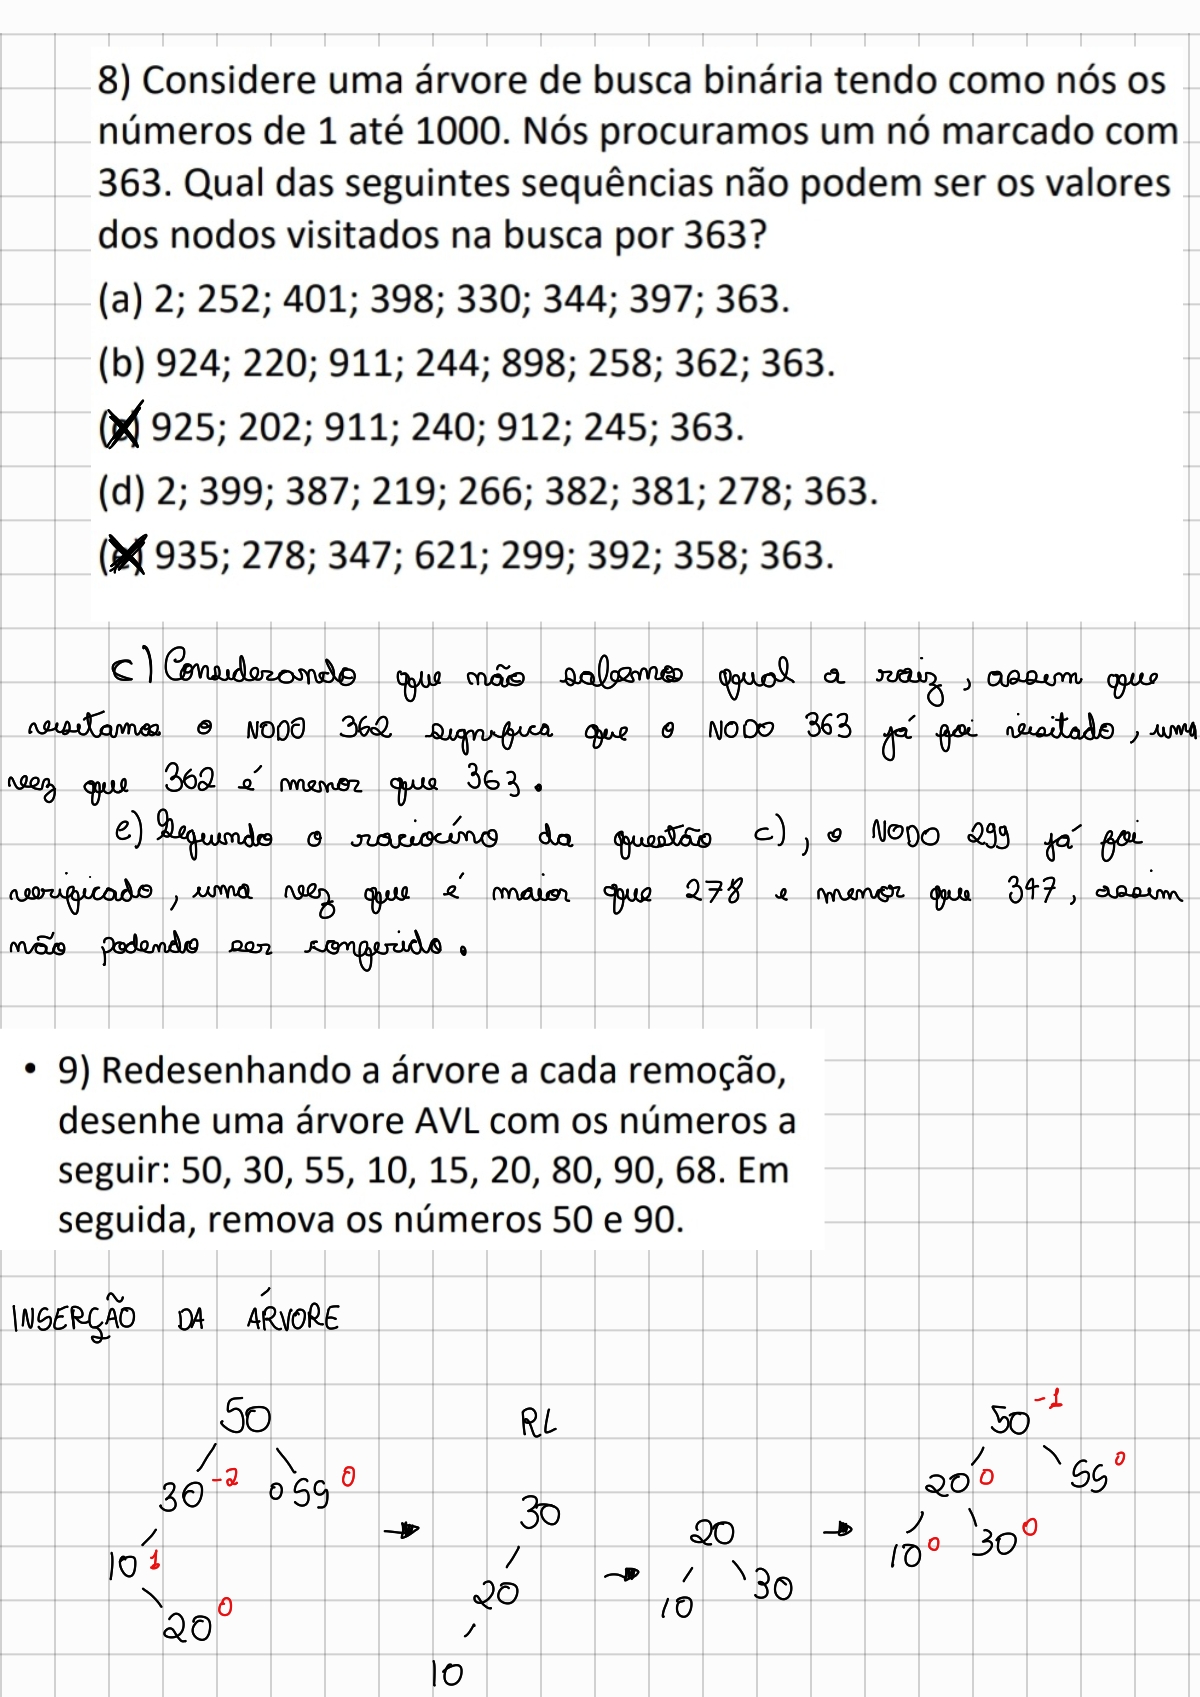 8) Considere uma árvore de busca binária tendo como nós os
números de 1 até 1000. Nós procuramos um nó marcado com
363. Qual das seguintes sequências não podem ser os valores
dos nodos visitados na busca por 363?
(a) 2; 252; 401; 398; 330; 344; 397; 363.
(b) 924; 220; 911; 244; 898; 258; 362; 363.
(c) 925; 202; 911; 240; 912; 245; 363.
(d) 2; 399; 387; 219; 266; 382; 381; 278; 363.
(e) 935; 278; 347; 621; 299; 392; 358; 363.
c) Considerando que não sabemos qual a raiz, assim que
visitamos o NODO 362 significa que o NODO 363 já foi visitado, uma
vez que 362 é menor que 363.
e) Seguindo o raciocíno da questão c), o NODO 299 já foi
verificado, uma vez que é maior que 278 e menor que 347, assim
não podendo ser conferido.
• 9) Redesenhando a árvore a cada remoção,
desenhe uma árvore AVL com os números a
seguir: 50, 30, 55, 10, 15, 20, 80, 90, 68. Em
seguida, remova os números 50 e 90.
INSERÇÃO DA ÁRVORE
50 RL 50 -1
30 -2 0 59 0 30 20 0 55 0
10 1 20 20 10 0 30 0
20 0 10 10 30